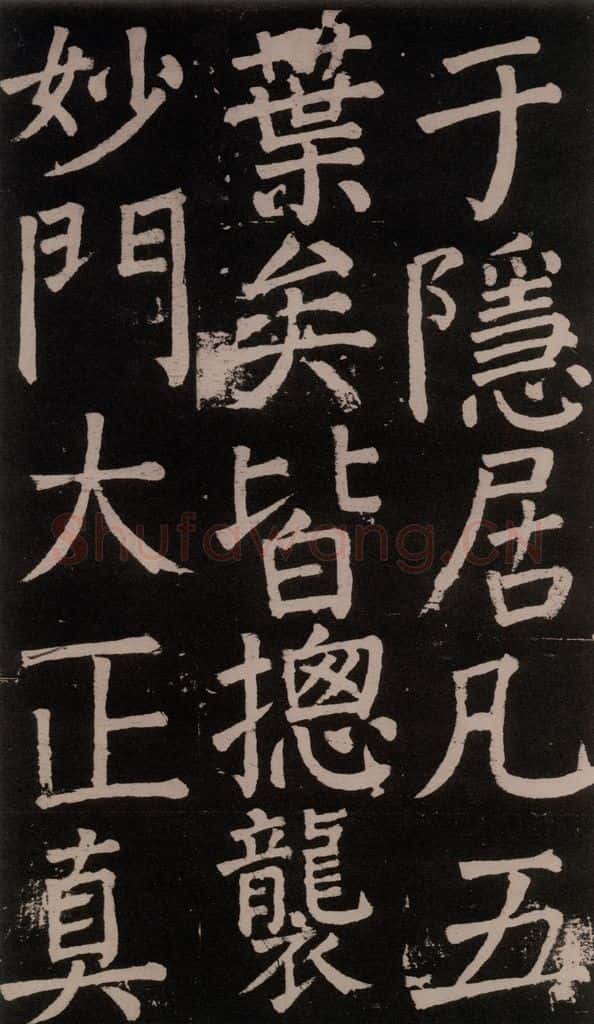 于隱居凡五
葉矣皆摠襲
妙門大正真
Shufawang.CN